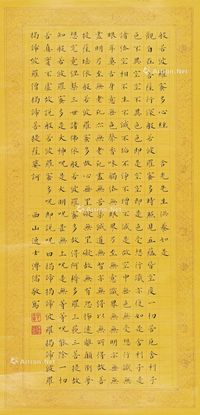 般若波羅蜜多心經
觀自在菩薩行深般若波羅蜜多時照見五蘊皆空度一切苦厄舍利子
色不異空空不異色色即是空空即是色受想行識亦復如是舍利子是
諸法空相不生不滅不垢不淨不增不減是故空中無色無受想行識無
眼耳鼻舌身意無色聲香味觸法無眼界乃至無意識界無無明亦無無明
盡乃至無老死亦無老死盡無苦集滅道無智亦無得以無所得故菩
提薩埵依般若波羅蜜多故心無罣礙無罣礙故無有恐怖遠離顛倒夢
想究竟涅槃三世諸佛依般若波羅蜜多故得阿耨多羅三藐三菩提故
知般若波羅蜜多是大神咒是大明咒是無上咒是無等等咒能除一切
苦真實不虛故說般若波羅蜜多咒即說咒曰揭諦揭諦波羅
揭諦波羅僧揭諦菩提薩婆訶
西山逸士溥儒敬寫